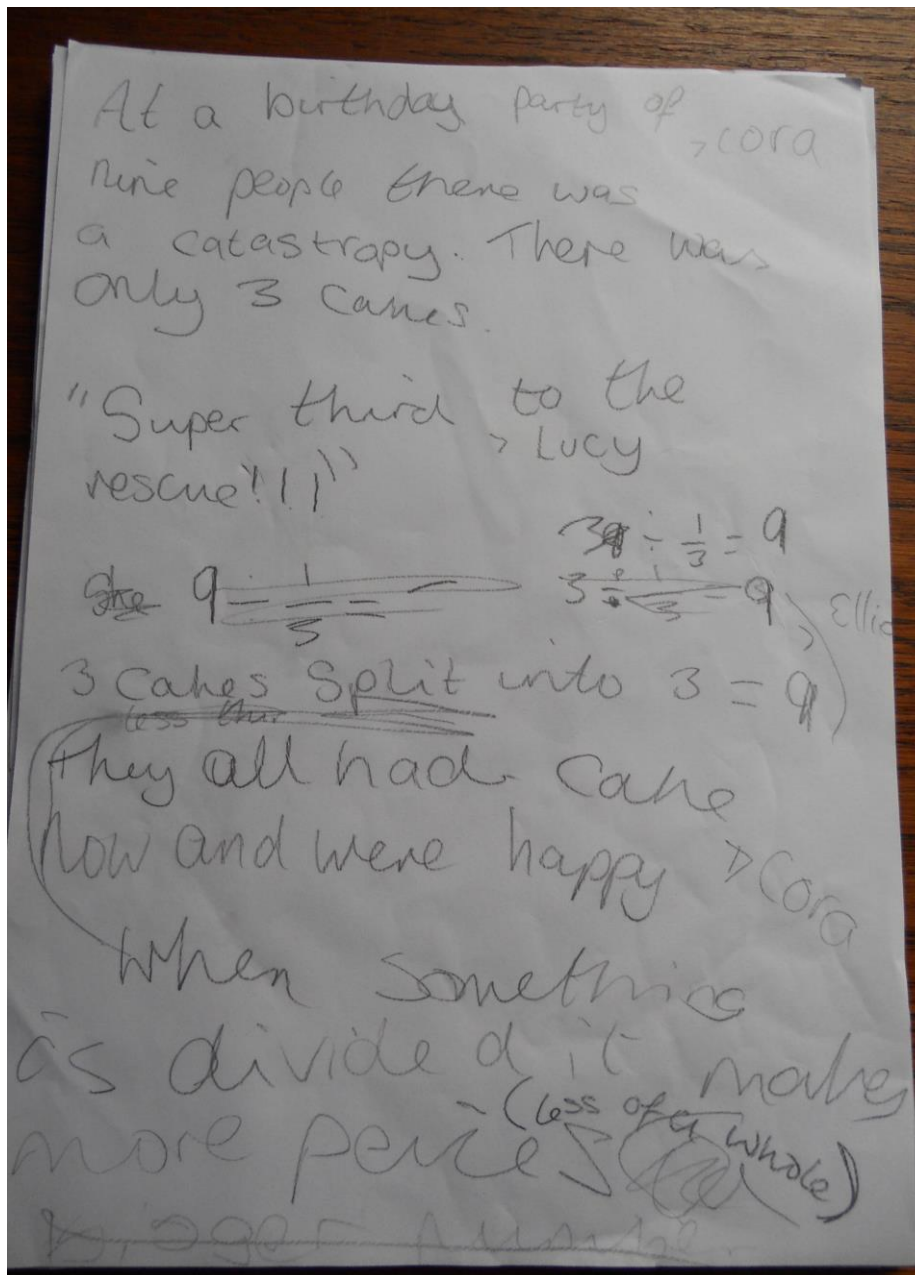 At a birthday party of
, cora
nine people there was
a catastrapy. There was
only 3 cakes.
"Super third to the
> Lucy
rescue!!!"
3 ÷ 1/3 = 9
She 9 - 1/3 =
3 ÷ 1/3 = 9
Ellie
3 cakes split into 3 = 9
less than
they all had cake
now and were happy > Cora
When something
is divided it makes
more peices
- (less of a whole)
bigger number.